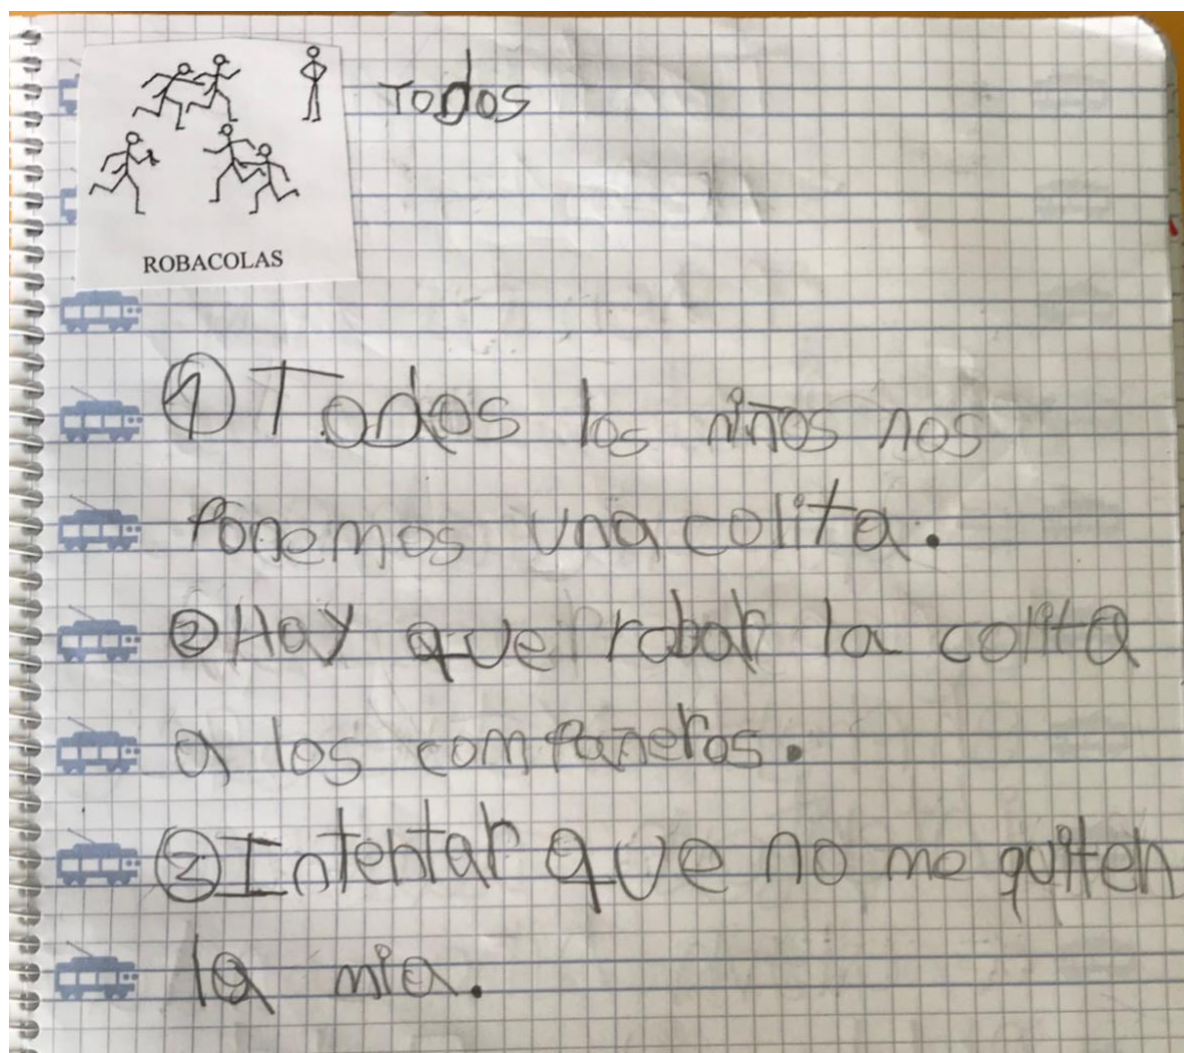 Todos
ROBACOLAS
① Todos los niños nos
Ponemos una colita.
② Hay que robar la colita
a los compañeros.
③ Intentar que no me quiten
la mia.